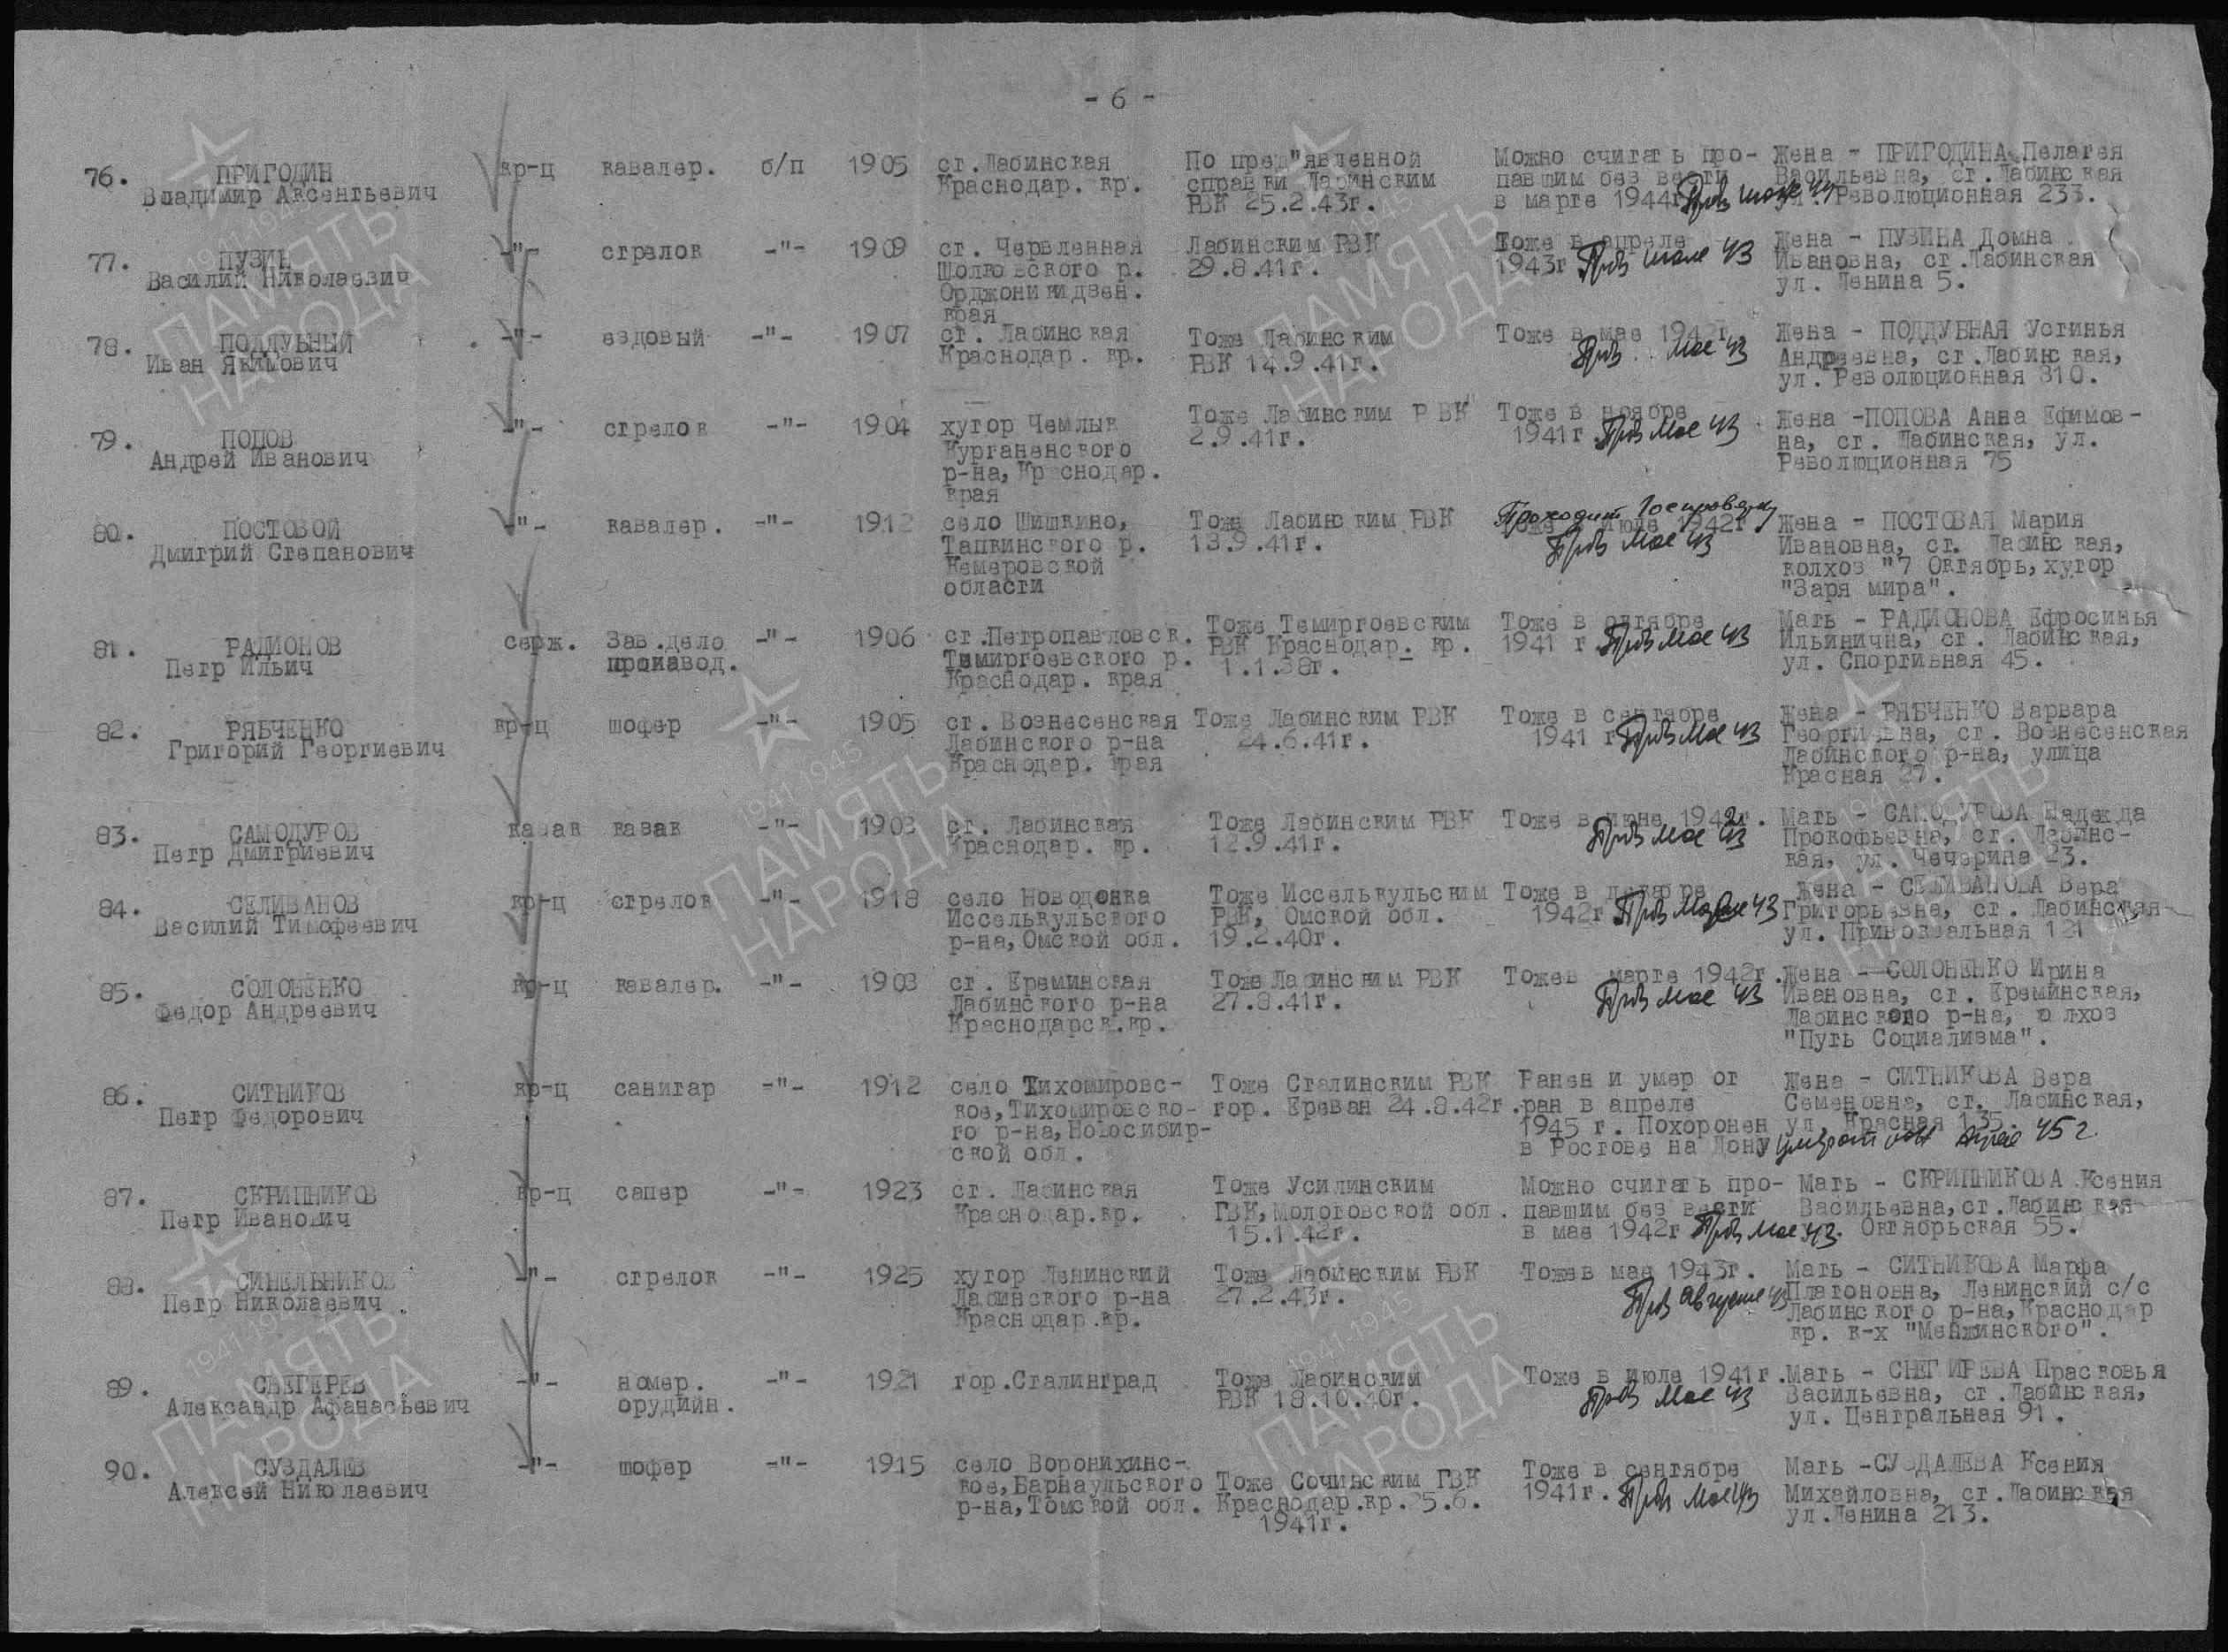 - 6 -
76. ПРИГОДИН Владимир Аксентьевич кр-ц кавалер. б/п 1905 ст.Лабинская Краснодар. кр. По пред"явленной справки Лабинским РВК 25.2.43г. Можно считать про-павшим без вести в марте 1944г Жена - ПРИГОДИНА Пелагея Васильевна, ст.Лабинская ул. Революционная 233.
77. ПУЗИН Василий Николаевич -"- стрелок -"- 1909 ст. Червленная Шолковского р. Орджоникидзен. края Лабинским РВК 29.8.41г. Тоже в апреле 1943г Прв июле 43 Жена - ПУЗИНА Домна Ивановна, ст.Лабинская ул. Ленина 5.
78. ПОДДУБНЫЙ Иван Якимович -"- ездовый -"- 1907 ст. Лабинская Краснодар. кр. Тоже Лабинским РВК 14.9.41г. Тоже в мае 1942г. Прв мае 43 Жена - ПОДДУБНАЯ Устинья Андреевна, ст.Лабинская, ул. Революционная 310.
79. ПОПОВ Андрей Иванович -"- стрелок -"- 1904 хутор Чемлык Курганенского р-на, Краснодар. края Тоже Лабинским РВК 2.9.41г. Тоже в ноябре 1941г Прв мае 43 Жена -ПОПОВА Анна Ефимов-на, ст. Лабинская, ул. Революционная 75
80. ПОСТОВОЙ Дмитрий Степанович -"- кавалер. -"- 1912 село Шишкино, Тапкинского р. Кемеровской области Тоже Лабинским РВК 13.9.41г. Проходит Госпроверку Тоже в июле 1942г Прв мае 43 Жена - ПОСТОВАЯ Мария Ивановна, ст. Лабинская, колхоз "7 Октябрь, хутор "Заря мира".
81. РАДИОНОВ Петр Ильич серж. Зав.дело производ. -"- 1906 ст.Петропавловск. Темиргоевского р. Краснодар. края Тоже Темиргоевским РВК Краснодар. кр. 1.1.38г. Тоже в октябре 1941 г Прв мае 43 Мать - РАДИОНОВА Ефросинья Ильинична, ст. Лабинская, ул. Спортивная 45.
82. РЯБЧЕНКО Григорий Георгиевич кр-ц шофер -"- 1905 ст. Вознесенская Лабинского р-на Краснодар. края Тоже Лабинским РВК 24.6.41г. Тоже в сентябре 1941 г Прв мае 43 Жена - РЯБЧЕНКО Варвара Георгиевна, ст. Вознесенская Лабинского р-на, улица Красная 27.
83. САМОДУРОВ Петр Дмитриевич казак казак -"- 1903 ст. Лабинская Краснодар. кр. Тоже Лабинским РВК 12.9.41г. Тоже в июне 1942г. Прв мае 43 Мать - САМОДУРОВА Надежда Прокофьевна, ст. Лабинс-кая, ул. Чечерина 23.
84. СЕЛИВАНОВ Василий Тимофеевич кр-ц стрелок -"- 1918 село Новодонка Исселькульского р-на, Омской обл. Тоже Исселькульским РВК, Омской обл. 19.2.40г. Тоже в декабре 1942г Прв 43 Жена - СЕЛИВАНОВА Вера Григорьевна, ст. Лабинская ул. Привокзальная 121
85. СОЛОНЕНКО Федор Андреевич кр-ц кавалер. -"- 1903 ст. Ереминская Лабинского р-на Краснодарск.кр. Тоже Лабинским РВК 27.8.41г. Тоже в марте 1942г. Прв мае 43 Жена - СОЛОНЕНКО Ирина Ивановна, ст. Ереминская, Лабинского р-на, колхоз "Путь Социализма".
86. СИТНИКОВ Петр Федорович кр-ц санитар -"- 1912 село Тихомировс-кое, Тихомировско-го р-на, Новосибир-ской обл. Тоже Сталинским РВК гор. Ереван 24.8.42г. Ранен и умер от ран в апреле 1945 г. Похоронен в Ростове на Дону Жена - СИТНИКОВА Вера Семеновна, ст. Лабинская, ул. Красная 135. 45 г.
87. СКРИПНИКОВ Петр Иванович кр-ц сапер -"- 1923 ст. Лабинская Краснодар.кр. Тоже Усилинским ГВК, Молотовской обл. 15.1.42г. Можно считать про-павшим без вести в мае 1942г Прв мае 43. Мать - СКРИПНИКОВА Ксения Васильевна, ст.Лабинская Октябрьская 55.
88. СИНЕЛЬНИКОВ Петр Николаевич -"- стрелок -"- 1925 хутор Ленинский Лабинского р-на Краснодар.кр. Тоже Лабинским РВК 27.2.43г. Тоже в мае 1943г. Прв августе 43 Мать - СИТНИКОВА Марфа Платоновна, Ленинский с/с Лабинского р-на, Краснодар кр. к-х "Менжинского".
89. СНЕГЕРЕВ Александр Афанасьевич -"- номер. орудийн. -"- 1921 гор.Сталинград Тоже Лабинским РВК 18.10.40г. Тоже в июле 1941г. Прв мае 43 Мать - СНЕГИРЕВА Прасковья Васильевна, ст.Лабинская, ул. Центральная 91.
90. СУЗДАЛЕВ Алексей Николаевич -"- шофер -"- 1915 село Воронихинс-кое, Барнаульского р-на, Томской обл. Тоже Сочинским ГВК Краснодар.кр. 25.6. 1941г. Тоже в сентябре 1941г. Прв мае 43 Мать -СУЗДАЛЕВА Ксения Михайловна, ст.Лабинская ул.Ленина 213.
1941-1945
ПАМЯТЬ
НАРОДА